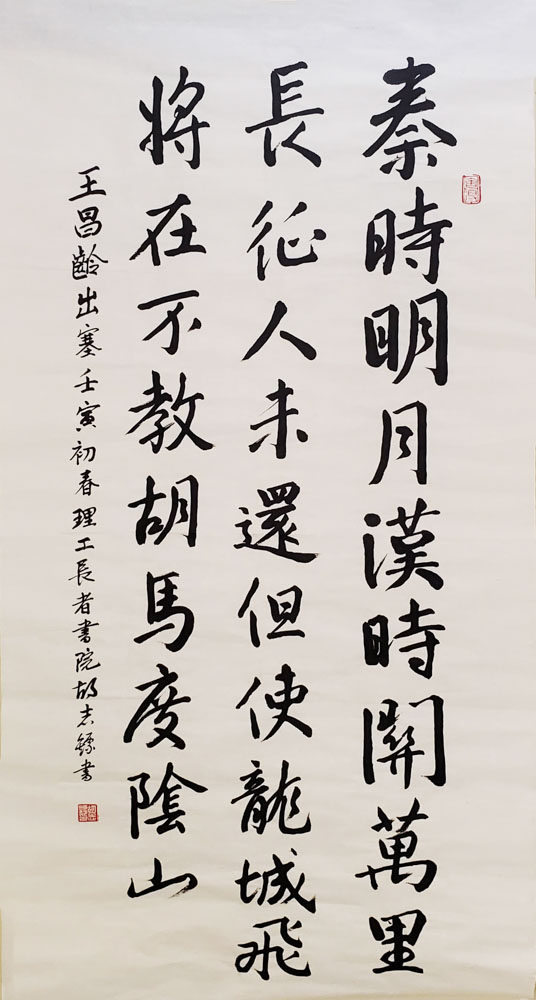 秦時明月漢時關萬里
長征人未還但使龍城飛
將在不教胡馬度陰山
王昌齡出塞壬寅初春理工長者書院胡志鏢書